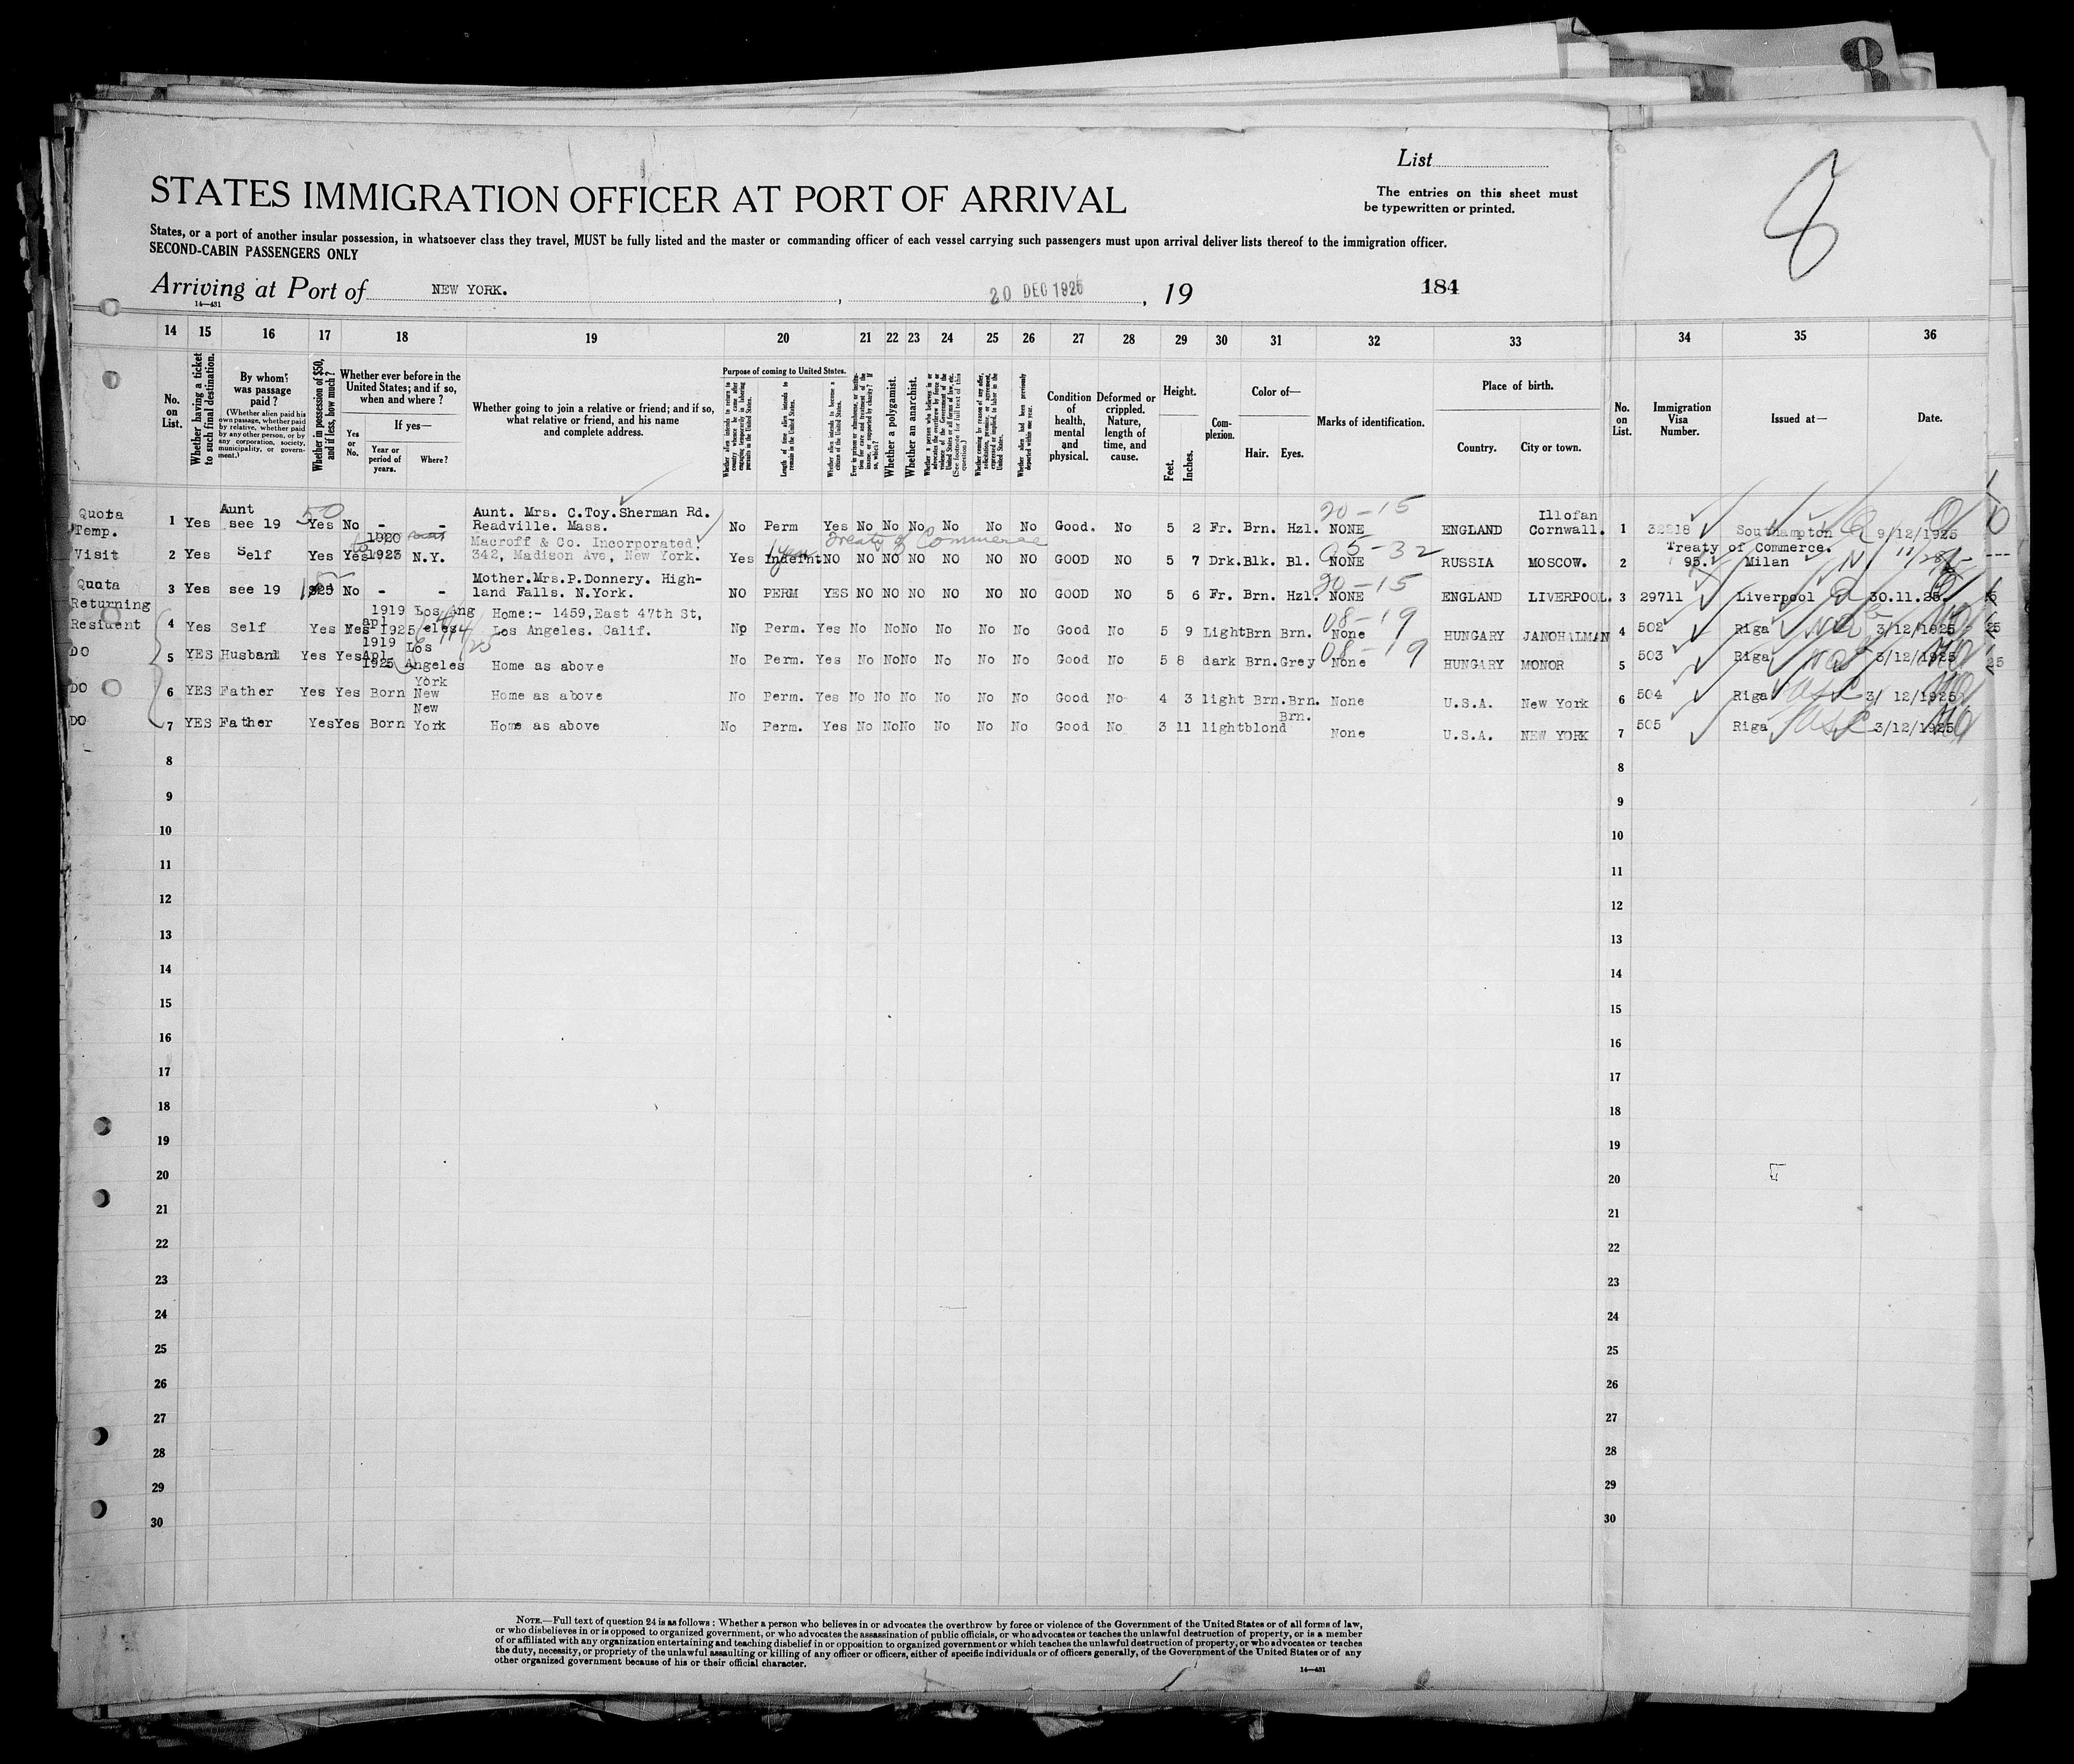 8
List
STATES IMMIGRATION OFFICER AT PORT OF ARRIVAL
The entries on this sheet must
be typewritten or printed.
8
States, or a port of another insular possession, in whatsoever class they travel, MUST be fully listed and the master or commanding officer of each vessel carrying such passengers must upon arrival deliver lists thereof to the immigration officer.
SECOND-CABIN PASSENGERS ONLY
Arriving at Port of NEW YORK. , 20 DEC 1925 , 19 184
14—431
14 15 16 17 18 19 20 21 22 23 24 25 26 27 28 29 30 31 32 33 34 35 36
No. on List.
Whether having a ticket to such final destination.
By whom was passage paid?
(Whether alien paid his own passage, whether paid by relative, whether paid by any other person, or by any corporation, society, municipality, or government.)
Whether in possession of $50, and if less, how much?
Whether ever before in the United States; and if so, when and where?
Yes or No.
If yes—
Year or period of years.
Where?
Whether going to join a relative or friend; and if so, what relative or friend, and his name and complete address.
Purpose of coming to United States.
Whether alien intends to return to country whence he came after engaging temporarily in laboring pursuits in the United States.
Length of time alien intends to remain in the United States.
Whether alien intends to become a citizen of the United States.
Ever in prison or almshouse, or institution for care and treatment of the insane, or supported by charity? If so, which?
Whether a polygamist.
Whether an anarchist.
Whether a person who believes in or advocates the overthrow by force or violence of the Government of the United States or all forms of law, etc. (See footnote for full text of this question.)
Whether coming by reason of any offer, solicitation, promise, or agreement, expressed or implied, to labor in the United States.
Whether alien had been previously deported within one year.
Condition of health, mental and physical.
Deformed or crippled. Nature, length of time, and cause.
Height.
Feet. Inches.
Complexion.
Color of—
Hair. Eyes.
Marks of identification.
Place of birth.
Country. City or town.
No. on List.
Immigration Visa Number.
Issued at—
Date.
Quota Aunt 50 Aunt. Mrs. C.Toy.Sherman Rd. 20-15 Illofan
Temp. 1 Yes see 19 Yes No - - Readville. Mass. No Perm Yes No No No No No No Good. No 5 2 Fr. Brn. Hzl. NONE ENGLAND Cornwall. 1 32218 Southampton 9/12/1925
1920 Macroff & Co. Incorporated. Treaty of Commerce 05-32 Treaty of Commerce.
Visit 2 Yes Self Yes Yes 1923 N.Y. 342, Madison Ave, New York. Yes Indefnt NO NO NO NO NO NO NO GOOD NO 5 7 Drk. Blk. Bl. NONE RUSSIA MOSCOW. 2 95. Milan 11/28/
Mother.Mrs.P.Donnery. High- 20-15
Quota 3 Yes see 19 No - - land Falls. N.York. NO PERM YES NO NO NO NO NO NO GOOD NO 5 6 Fr. Brn. Hzl. NONE ENGLAND LIVERPOOL. 3 29711 Liverpool 30.11.25.
Returning 1919 Los Ang Home:- 1459,East 47th St, 08-19
Resident 4 Yes Self Yes Yes apl 1925 eles Los Angeles. Calif. No Perm. Yes No No No No No No Good No 5 9 Light Brn Brn. None HUNGARY JANOHALMAN 4 502 Riga 3/12/1925
1919 Los 08-19
DO 5 YES Husband Yes Yes Apl. 1925 Angeles Home as above No Perm. Yes No No No No No No Good No 5 8 dark Brn. Grey None HUNGARY MONOR 5 503 Riga 3/12/1925
York
DO 6 YES Father Yes Yes Born New Home as above No Perm. Yes No No No No No No Good No 4 3 light Brn. Brn. None U.S.A. New York 6 504 Riga 3/ 12/1925
New Brn.
DO 7 YES Father Yes Yes Born York Home as above No Perm. Yes No No No No No No Good No 3 11 light blond None U.S.A. NEW YORK 7 505 Riga 3/12/1925
8 8
9 9
10 10
11 11
12 12
13 13
14 14
15 15
16 16
17 17
18 18
19 19
20 20
21 21
22 22
23 23
24 24
25 25
26 26
27 27
28 28
29 29
30 30
NOTE.—Full text of question 24 is as follows: Whether a person who believes in or advocates the overthrow by force or violence of the Government of the United States or of all forms of law,
or who disbelieves in or is opposed to organized government, or who advocates the assassination of public officials, or who advocates or teaches the unlawful destruction of property, or is a member
of or affiliated with any organization entertaining and teaching disbelief in or opposition to organized government or which teaches the unlawful destruction of property, or who advocates or teaches
the duty, necessity, or propriety of the unlawful assaulting or killing of any officer or officers, either of specific individuals or of officers generally, of the Government of the United States or of any
other organized government because of his or their official character.
14—431